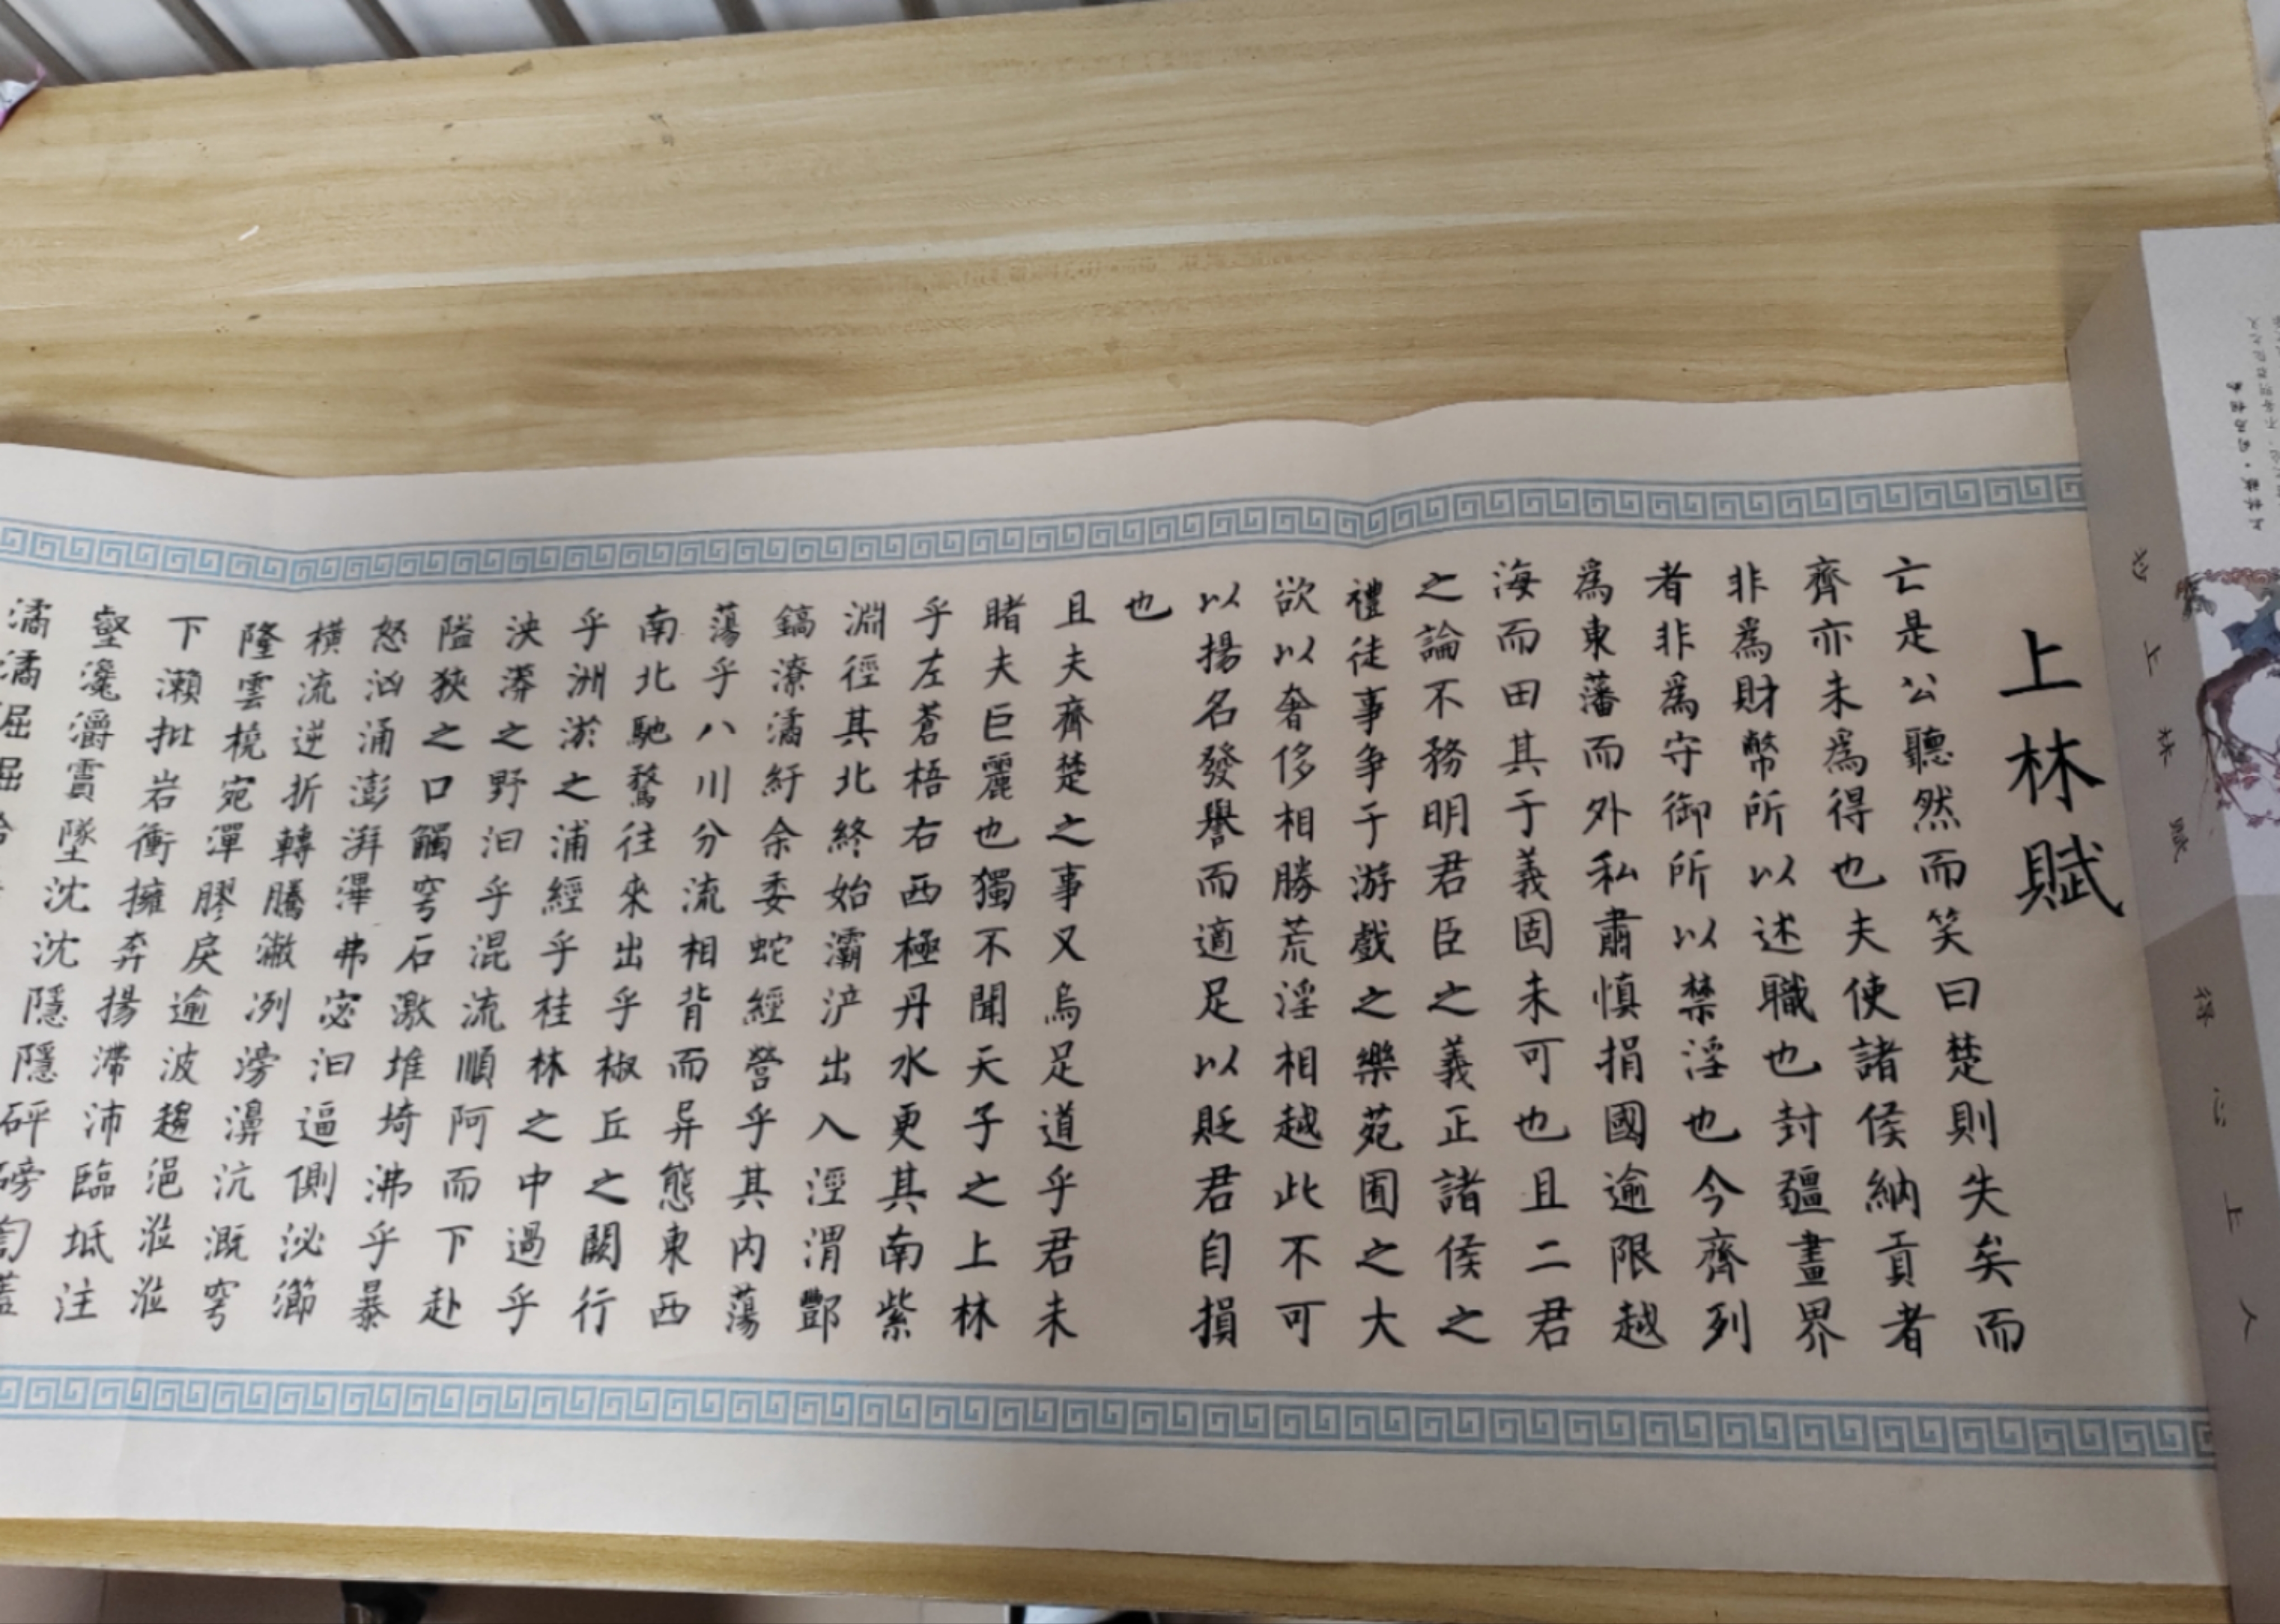 上林賦
亡是公聽然而笑曰楚則失矣而
齊亦未為得也夫使諸侯納貢者
非爲財幣所以述職也封疆畫界
者非爲守御所以禁淫也今齊列
爲東藩而外私肅慎捐國逾限越
海而田其于義固未可也且二君
之論不務明君臣之義正諸侯之
禮徒事争于游戲之樂苑囿之大
欲以奢侈相勝荒淫相越此不可
以揚名發譽而適足以貶君自損
也
且夫齊楚之事又烏足道乎君未
睹夫巨麗也獨不聞天子之上林
乎左蒼梧右西極丹水更其南紫
淵徑其北終始灞浐出入涇渭酆
鎬潦潏紆余委蛇經營乎其内蕩
蕩乎八川分流相背而异態東西
南北馳騖往來出乎椒丘之闕行
乎洲淤之浦經乎桂林之中過乎
泱漭之野汩乎混流順阿而下赴
隘狹之口觸穹石激堆埼沸乎暴
怒洶涌澎湃滭弗宓汩逼側泌瀄
橫流逆折轉騰潎洌滂濞沆溉穹
隆雲橈宛潬膠戾逾波趨浥涖涖
下瀨批岩衝擁奔揚滯沛臨坻注
壑瀺灂霣墜沈沈隱隱砰磅訇
潏潏淈淈
上林賦·司馬相如
上林賦